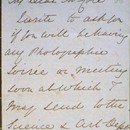 My dear Sir
I write to ask for
if you will be having
any Photographic
Soirée or meeting
soon at which I
may send to the
Science & Art Dep